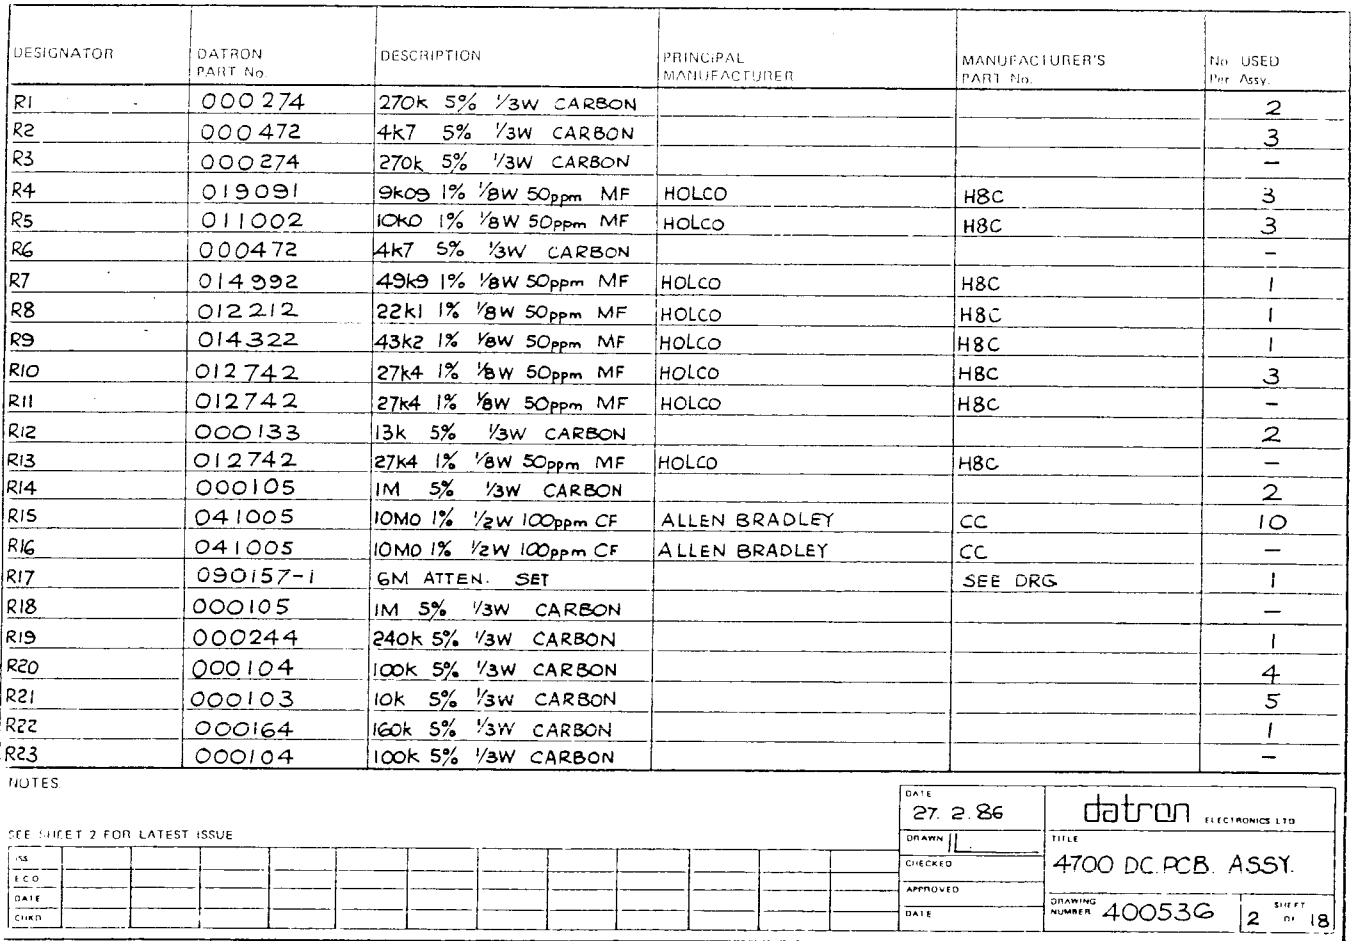 DESIGNATOR DATRON PART No. DESCRIPTION PRINCIPAL MANUFACTURER MANUFACTURER'S PART No. No USED Per Assy.
R1 000274 270k 5% 1/3W CARBON 2
R2 000472 4k7 5% 1/3W CARBON 3
R3 000274 270k 5% 1/3W CARBON -
R4 019091 9k09 1% 1/8W 50ppm MF HOLCO H8C 3
R5 011002 10k0 1% 1/8W 50ppm MF HOLCO H8C 3
R6 000472 4k7 5% 1/3W CARBON -
R7 014992 49k9 1% 1/8W 50ppm MF HOLCO H8C 1
R8 012212 22k1 1% 1/8W 50ppm MF HOLCO H8C 1
R9 014322 43k2 1% 1/8W 50ppm MF HOLCO H8C 1
R10 012742 27k4 1% 1/8W 50ppm MF HOLCO H8C 3
R11 012742 27k4 1% 1/8W 50ppm MF HOLCO H8C -
R12 000133 13k 5% 1/3W CARBON 2
R13 012742 27k4 1% 1/8W 50ppm MF HOLCO H8C -
R14 000105 1M 5% 1/3W CARBON 2
R15 041005 10M0 1% 1/2W 100ppm CF ALLEN BRADLEY CC 10
R16 041005 10M0 1% 1/2W 100ppm CF ALLEN BRADLEY CC -
R17 090157-1 6M ATTEN. SET SEE DRG 1
R18 000105 1M 5% 1/3W CARBON -
R19 000244 240k 5% 1/3W CARBON 1
R20 000104 100k 5% 1/3W CARBON 4
R21 000103 10k 5% 1/3W CARBON 5
R22 000164 160k 5% 1/3W CARBON 1
R23 000104 100k 5% 1/3W CARBON -
NOTES
SEE SHEET 2 FOR LATEST ISSUE
ISS
E C O
DATE
CHKD
DATE
27.2.86
DRAWN
CHECKED
APPROVED
DATE
datron ELECTRONICS LTD
TITLE
4700 DC. PCB. ASSY.
DRAWING NUMBER 400536
2 SHEET OF 18